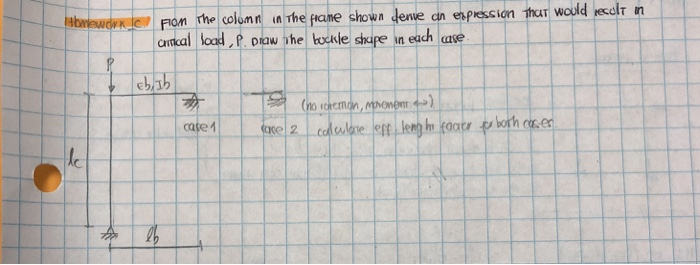 Homework C From The column in The frame shown derive an expression That would result in
critical load, P. Draw The buckle shape in each case.
P
Eb, Ib
(no rotation, movement ↔)
case 1 case 2 calculate eff. length factor for both cases
lc
lb